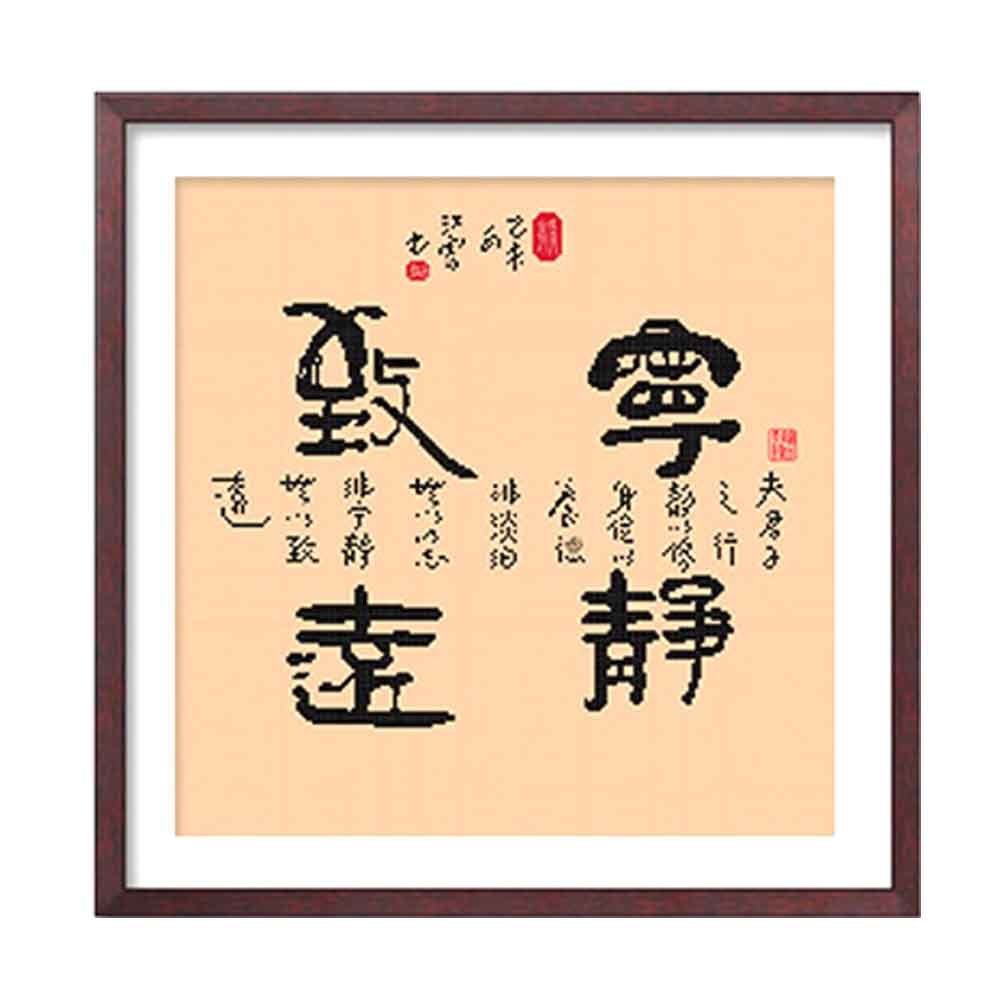 寧靜
致遠
夫君子
之行
靜以修
身儉以
養德
非淡泊
無以明志
非寧靜
無以致
遠
江雪
書